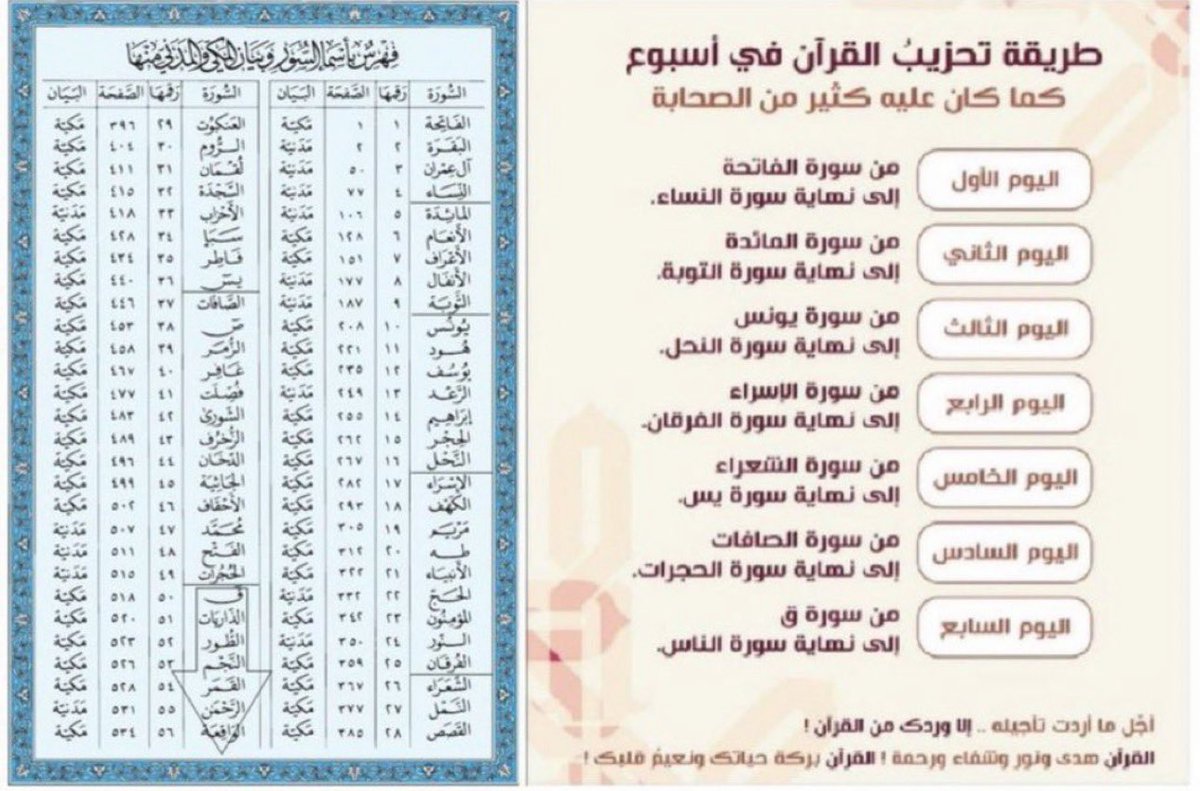 طريقة تحزيبُ القرآن في أسبوع
كما كان عليه كثير من الصحابة
اليوم الأول
من سورة الفاتحة
إلى نهاية سورة النساء.
اليوم الثاني
من سورة المائدة
إلى نهاية سورة التوبة.
اليوم الثالث
من سورة يونس
إلى نهاية سورة النحل.
اليوم الرابع
من سورة الإسراء
إلى نهاية سورة الفرقان.
اليوم الخامس
من سورة الشعراء
إلى نهاية سورة يس.
اليوم السادس
من سورة الصافات
إلى نهاية سورة الحجرات.
اليوم السابع
من سورة ق
إلى نهاية سورة الناس.
أجّل ما أردت تأجيله .. إلا وردك من القرآن !
القرآن هدى ونور وشفاء ورحمة ! القرآن بركة حياتك ونعيمُ قلبك !
فهرس بأسماء السور وبيان المكي والمدني منها
السورة رقمها الصفحة البيان السورة رقمها الصفحة البيان
الفاتحة ١ ١ مكية العنكبوت ٢٩ ٣٩٦ مكية
البقرة ٢ ٢ مدنية الروم ٣٠ ٤٠٤ مكية
آل عمران ٣ ٥٠ مدنية لقمان ٣١ ٤١١ مكية
النساء ٤ ٧٧ مدنية السجدة ٣٢ ٤١٥ مكية
المائدة ٥ ١٠٦ مدنية الأحزاب ٣٣ ٤١٨ مدنية
الأنعام ٦ ١٢٨ مكية سبإ ٣٤ ٤٢٨ مكية
الأعراف ٧ ١٥١ مكية فاطر ٣٥ ٤٣٤ مكية
الأنفال ٨ ١٧٧ مدنية يس ٣٦ ٤٤٠ مكية
التوبة ٩ ١٨٧ مدنية الصافات ٣٧ ٤٤٦ مكية
يونس ١٠ ٢٠٨ مكية ص ٣٨ ٤٥٣ مكية
هود ١١ ٢٢١ مكية الزمر ٣٩ ٤٥٨ مكية
يوسف ١٢ ٢٣٥ مكية غافر ٤٠ ٤٦٧ مكية
الرعد ١٣ ٢٤٩ مدنية فصلت ٤١ ٤٧٧ مكية
إبراهيم ١٤ ٢٥٥ مكية الشورى ٤٢ ٤٨٣ مكية
الحجر ١٥ ٢٦٢ مكية الزخرف ٤٣ ٤٨٩ مكية
النحل ١٦ ٢٦٧ مكية الدخان ٤٤ ٤٩٦ مكية
الإسراء ١٧ ٢٨٢ مكية الجاثية ٤٥ ٤٩٩ مكية
الكهف ١٨ ٢٩٣ مكية الأحقاف ٤٦ ٥٠٢ مكية
مريم ١٩ ٣٠٥ مكية محمد ٤٧ ٥٠٧ مدنية
طه ٢٠ ٣١٢ مكية الفتح ٤٨ ٥١١ مدنية
الأنبياء ٢١ ٣٢٢ مكية الحجرات ٤٩ ٥١٥ مدنية
الحج ٢٢ ٣٣٢ مدنية ق ٥٠ ٥١٨ مكية
المؤمنون ٢٣ ٣٤٢ مكية الذاريات ٥١ ٥٢٠ مكية
النور ٢٤ ٣٥٠ مدنية الطور ٥٢ ٥٢٣ مكية
الفرقان ٢٥ ٣٥٩ مكية النجم ٥٣ ٥٢٦ مكية
الشعراء ٢٦ ٣٦٧ مكية القمر ٥٤ ٥٢٨ مكية
النمل ٢٧ ٣٧٧ مكية الرحمن ٥٥ ٥٣١ مدنية
القصص ٢٨ ٣٨٥ مكية الواقعة ٥٦ ٥٣٤ مكية